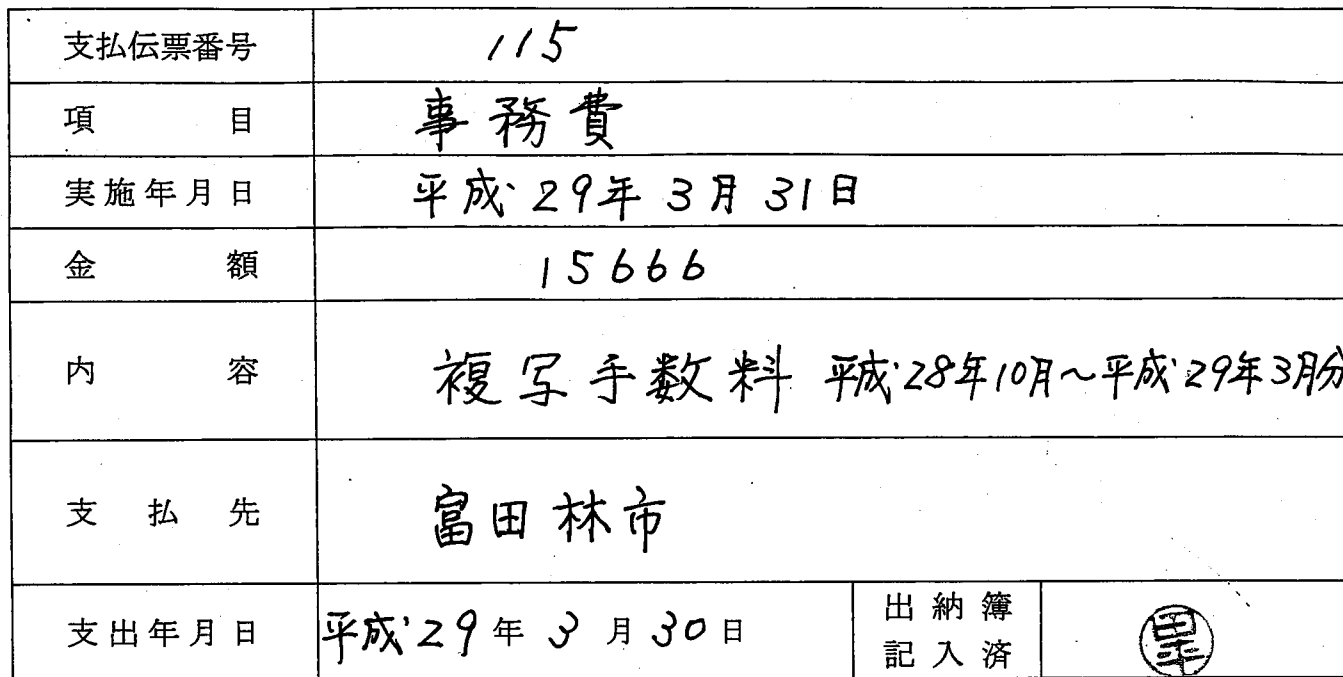 支払伝票番号 115
項目 事務費
実施年月日 平成29年3月31日
金額 15666
内容 複写手数料 平成28年10月～平成29年3月分
支払先 富田林市
支出年月日 平成29年3月30日 出納簿
記入済